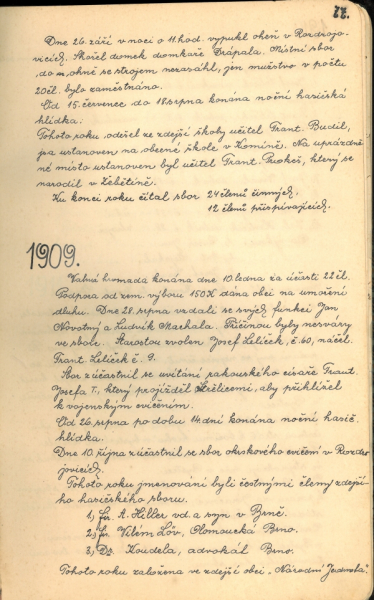 77.
Dne 26. září v noci o 11. hod. vypukl oheň v Rozdrojo-
vicích. Shořel domek domkaře Drápala. Místní sbor
do ohně se strojem nezasáhl, jen mužstvo v počtu
20 čl. bylo zaměstnáno.
Od 15. července do 18. srpna konána noční hasičská
hlídka.
Tohoto roku odešel ze zdejší školy učitel Frant. Budil,
jsa ustanoven na obecné škole v Komíně. Na uprázdně-
né místo ustanoven byl učitel Frant. Prokeš, který se
narodil v Žebětíně.
Ku konci roku čítal sbor 24 členů činných,
12 členů přispívajících.
1909.
Valná hromada konána dne 10. ledna za účasti 22 čl.
Podpora od zem. výboru 150 K dána obci na umoření
dluhu. Dne 28. srpna vzdali se svých funkcí Jan
Novotný a Ludvík Machala. Příčinou byly nesváry
ve sboru. Starostou zvolen Josef Lelíček, č. 60, náčel.
Frant. Lelíček č. 9.
Sbor zúčastnil se uvítání rakouského císaře Frant.
Josefa I., který projížděl Střelicemi, aby přihlížel
k vojenským cvičením.
Od 26. srpna po dobu 14. dní konána noční hasič.
hlídka.
Dne 10. října zúčastnil se sbor okrskového cvičení v Rozdro-
jovicích.
Tohoto roku jmenováni byli čestnými členy zdejší-
ho hasičského sboru.
1, fr. A. Hiller vd. a syn v Brně.
2, fr. Vilém Löv, Olomoucká Brno.
3, Dr. Koudela, advokát Brno.
Tohoto roku založena ve zdejší obci „Národní Jednota".